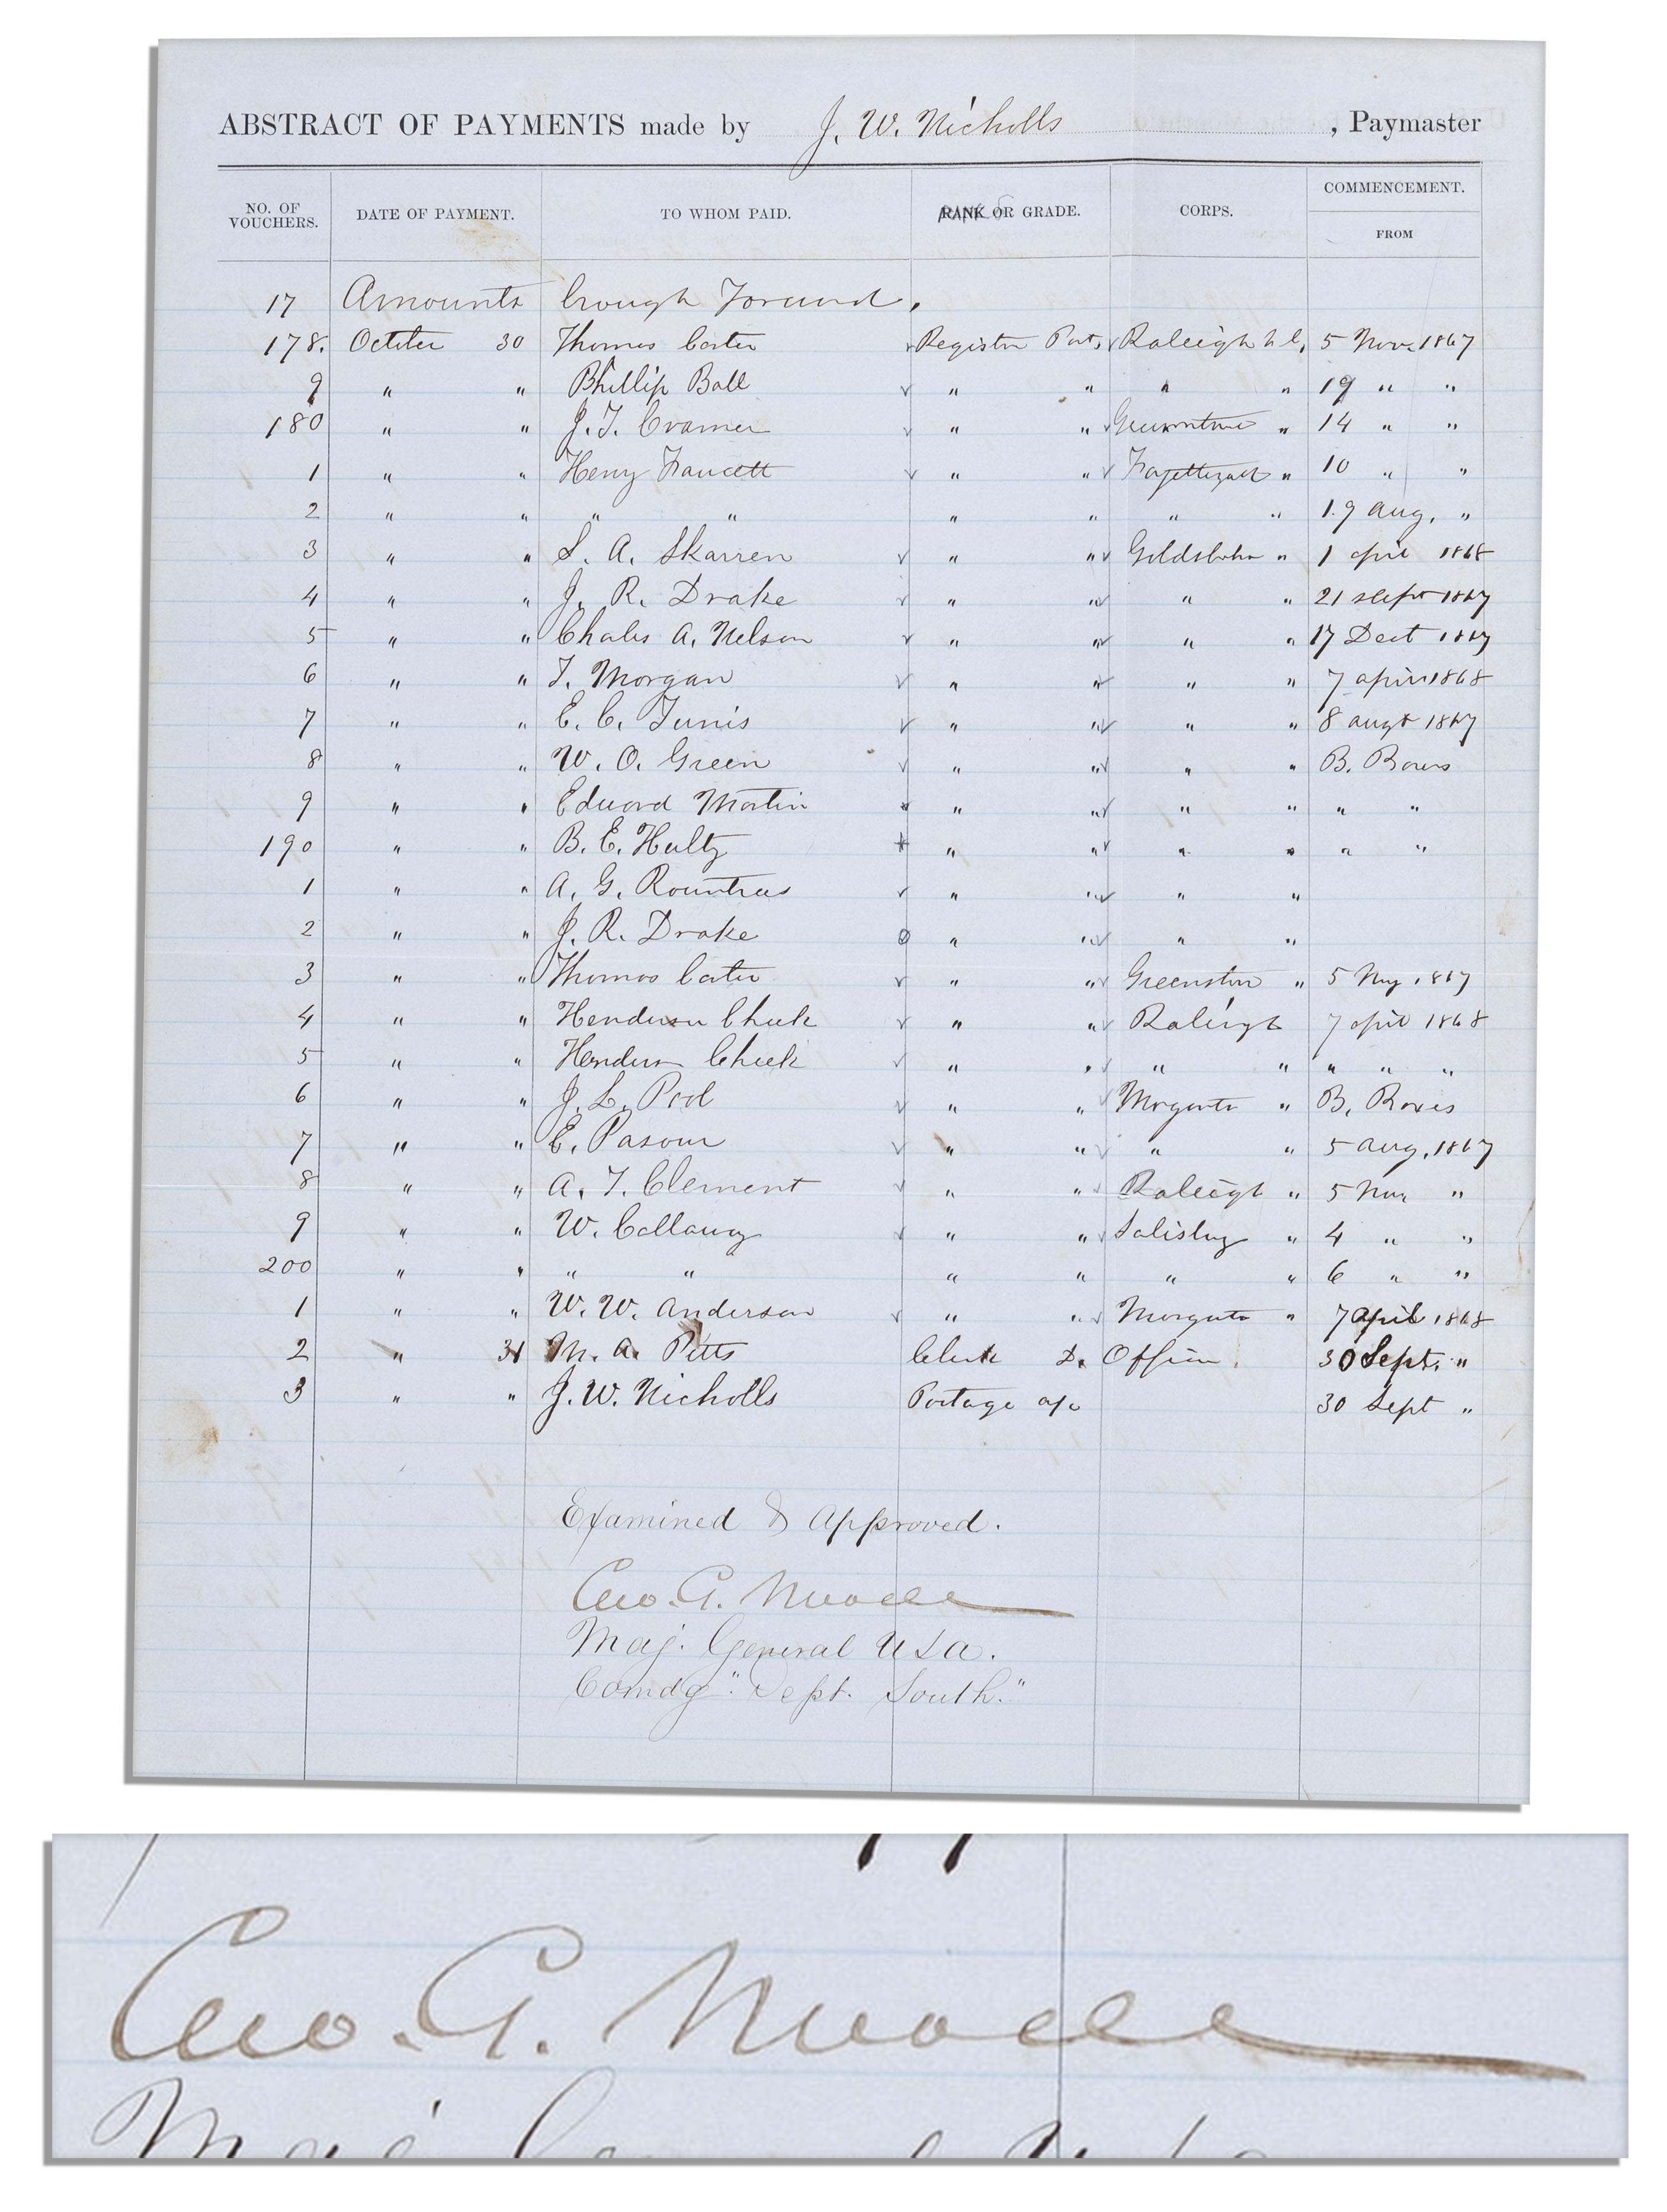 ABSTRACT OF PAYMENTS made by J. W. Nicholls , Paymaster
NO. OF VOUCHERS. DATE OF PAYMENT. TO WHOM PAID. RANK OR GRADE. CORPS. COMMENCEMENT. FROM
17 Amounts brough Forward.
178. October 30 Thomas Carter Register Raleigh N.C. 5 Nov. 1867
9 " " Phillip Ball " " " " 19 " "
180 " " J. T. Cramer " " " 14 " "
1 " " Henry Faucett " " " 10 " "
2 " " " " " " " " 19 Aug. "
3 " " S. A. Skarren " " Goldsboro " 1 April 1868
4 " " J. R. Drake " " " " 21 Sept 1867
5 " " Charles A. Nelson " " " " 17 1867
6 " " T. Morgan " " " " 7 April 1868
7 " " E. C. Tunis " " " " 8 Augt 1867
8 " " W. O. Green " " " " B.
9 " " Edward Martin " " " " " "
190 " " B. E. Hultz " " " " " "
1 " " A. G. Rountree " " " "
2 " " J. R. Drake " " " "
3 " " Thomas Carter " " " 5 1867
4 " " Henderson Cheek " " Raleigh 7 April 1868
5 " " Henderson Cheek " " " " " " "
6 " " J. L. Pool " " " B.
7 " " E. Pasour " " " " 5 Aug. 1867
8 " " A. T. Clement " " Raleigh " 5 Nov "
9 " " W. Callaway " " Salisbury " 4 " "
200 " " " " " " " " 6 " "
1 " " W. W. Anderson " " " 7 April 1868
2 " 31 M. A. Pitts Clerk D. 30 Sept. "
3 " " J. W. Nicholls Postage a/c 30 Sept "
Examined & Approved.
Geo. G. Meade
Maj. General USA.
Comdg "Dept. South."
Geo. G. Meade